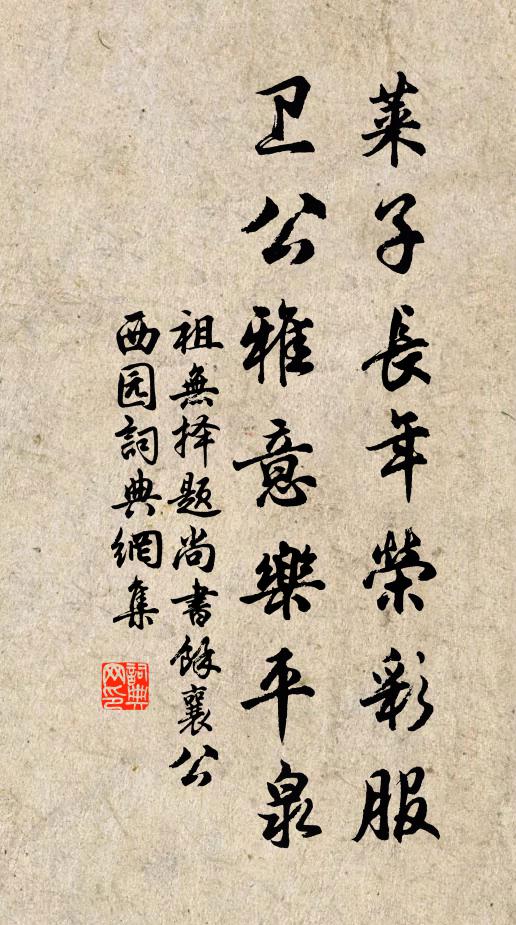 萊子長年榮彩服
卫公雅意樂平泉
祖無择題尚書餘襄公
西园詞典網集
詞典网印